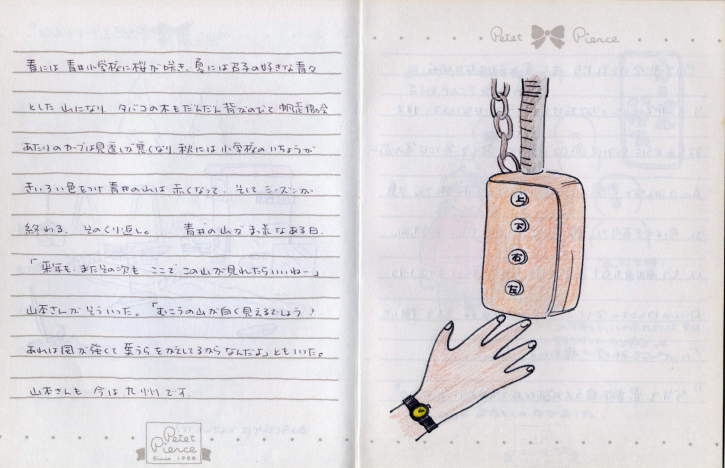 春には 青井小学校に桜が咲き、夏には君子の好きな青々
とした山になり タバコの木もだんだん背がのびて 帆足橋の
あたりのカーブは見通しが悪くなり 秋には小学校のいちょうが
きいろい色をつけ 青井の山は 赤くなって、そして シーズンが
終わる、 そのくり返し。 青井の山がま赤なある日、
「来年も、またその次も ここで この山が見れたらいいねー」
山本さんが そういった。「むこうの山が白く見えるでしょう?
あれは風が強くて 葉うらをかえしてるから なんだよ」ともいった。
山本さんも 今は 九州です.
Petet Pierce
Since 1988
Petet Pierce
上
下
右
左